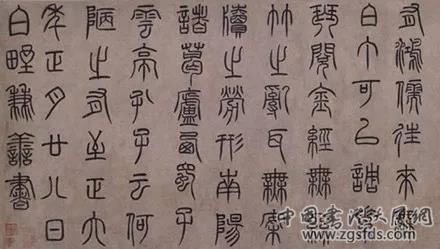 有鴻儒往來無
白丁可以調素
琴閱金經無絲
竹之亂耳無案
牘之勞形南陽
諸葛廬西蜀子
雲亭孔子云何
陋之有至正六
年正月廿八日
白野兼善書
中国書法大廈
www.zgsfds.com